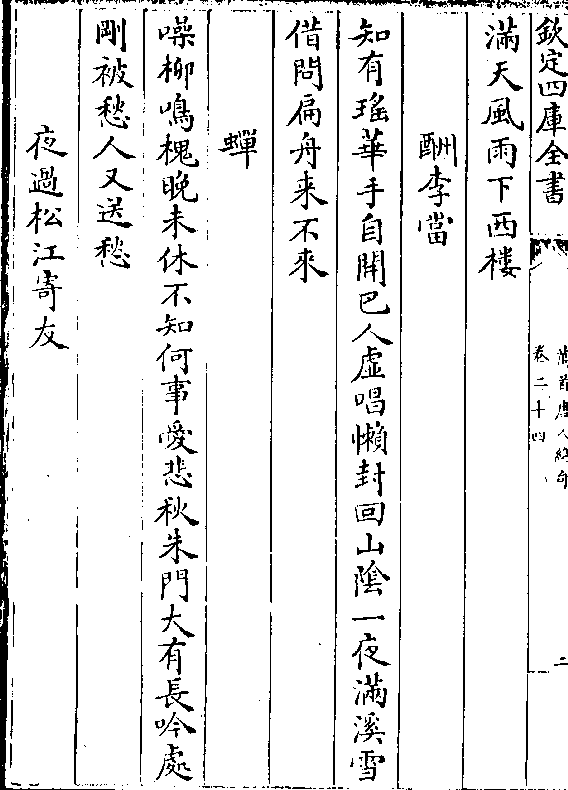 欽定四庫全書
卷二十四
二
滿天風雨下西楼
酬李當
知有瑤華手自開巴人虛唱懶封回山陰一夜滿溪雪
借問扁舟来不來
蟬
噪柳鳴槐晚未休不知何事愛悲秋朱門大有長吟處
剛被愁人又送愁
夜過松江寄友